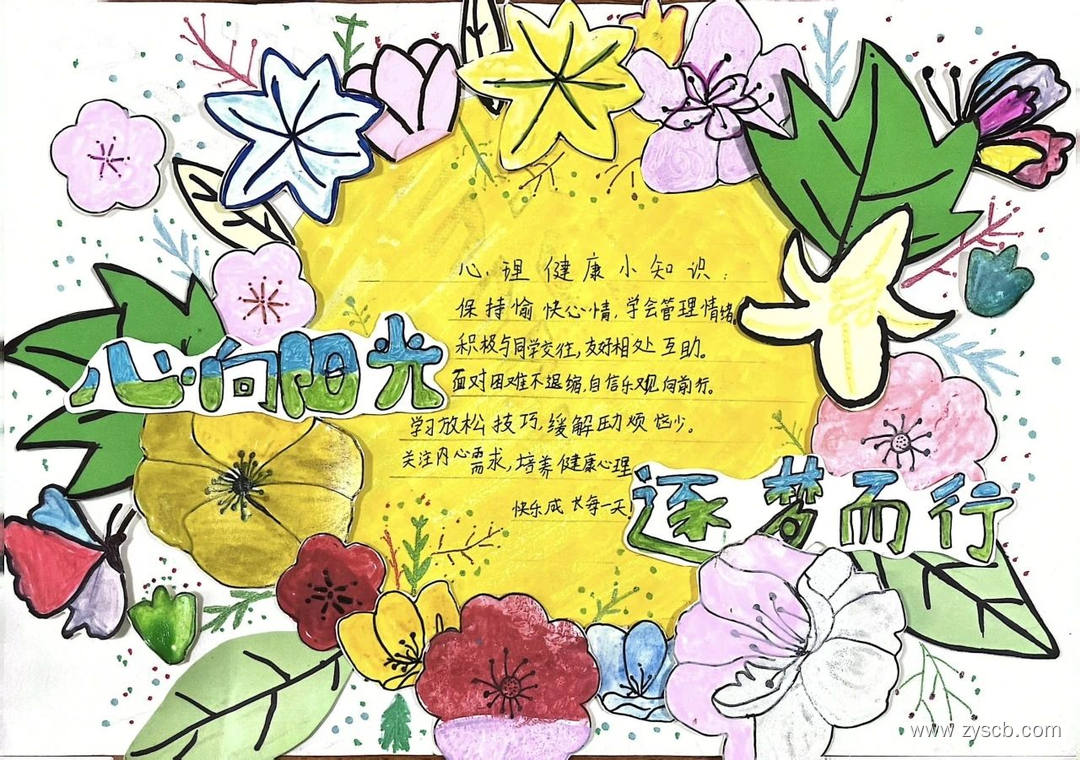 心理健康小知识:
保持愉快心情,学会管理情绪
积极与同学交往,友好相处互助。
面对困难不退缩,自信乐观向前行。
心向阳光
学习放松技巧,缓解压力烦恼少。
关注内心需求,培养健康心理
快乐成长每一天
逐梦而行
www.zyscb.com